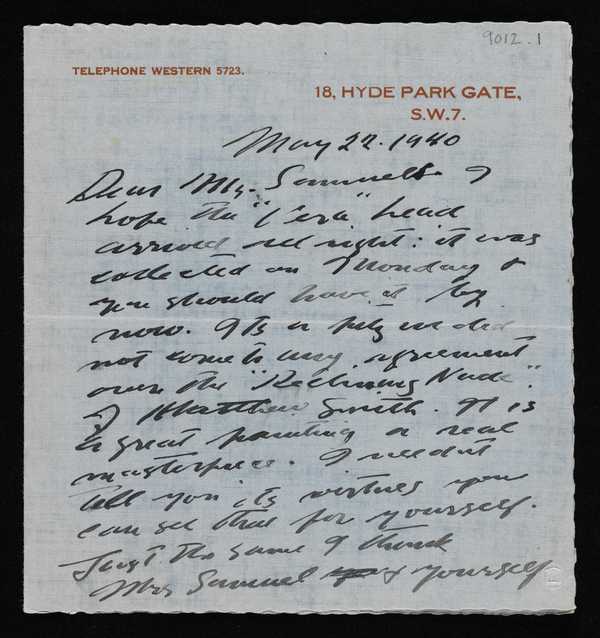 9012.1
TELEPHONE WESTERN 5723.
18, HYDE PARK GATE,
S.W.7.
May 22. 1940
Dear Mr. Samuels I
hope the "Vera" head
arrived all right: it was
collected on Monday &
you should have it by
now. Its a pity we did
not come to any agreement
over the "Reclining Nude".
of Matthew Smith. It is
a great painting a real
masterpiece. I neednt
tell you its virtues you
can see that for yourself.
Just the same I think
Mrs Samuel & yourself